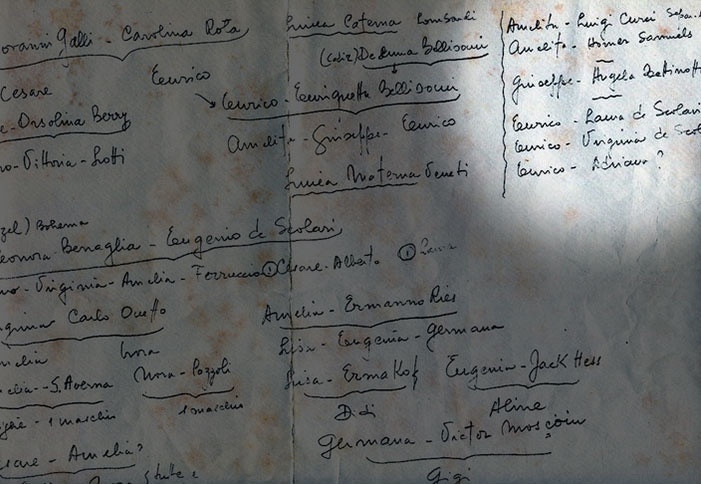 Giovanni Galli - Carolina Rota
Cesare Enrico
Orsolina Berry
Vittoria - Lotti
Linea Paterna Lombardi
(Cadiz) De Luna Bellisomi
Enrico - Enriquetta Bellisomi
Amelita - Giuseppe - Enrico
Linea Materna Veneti
Amelita - Luigi Curci
Amelita - Homer Samuels
Giuseppe - Angela Bettinotti
Enrico - Laura de Scolari
Enrico - Virginia de Scol
Enrico - Adriana?
zel) Bohema
Eleonora Benaglia - Eugenio de Scolari
no - Virginia - Amelia - Ferruccio ① Cesare - Alberto ① Laura
Carlo Ouetto
Amelia - Ermanno Ries
melia Nora
Lisa - Eugenia - Germana
melia - S. Averna Nora - Pozzoli
Luisa - Ermakof Eugenia - Jack Hess
- 1 maschio 1 maschio
Didi Aline
Germana - Victor Mosçoin
esare - Amelia?
Gigi